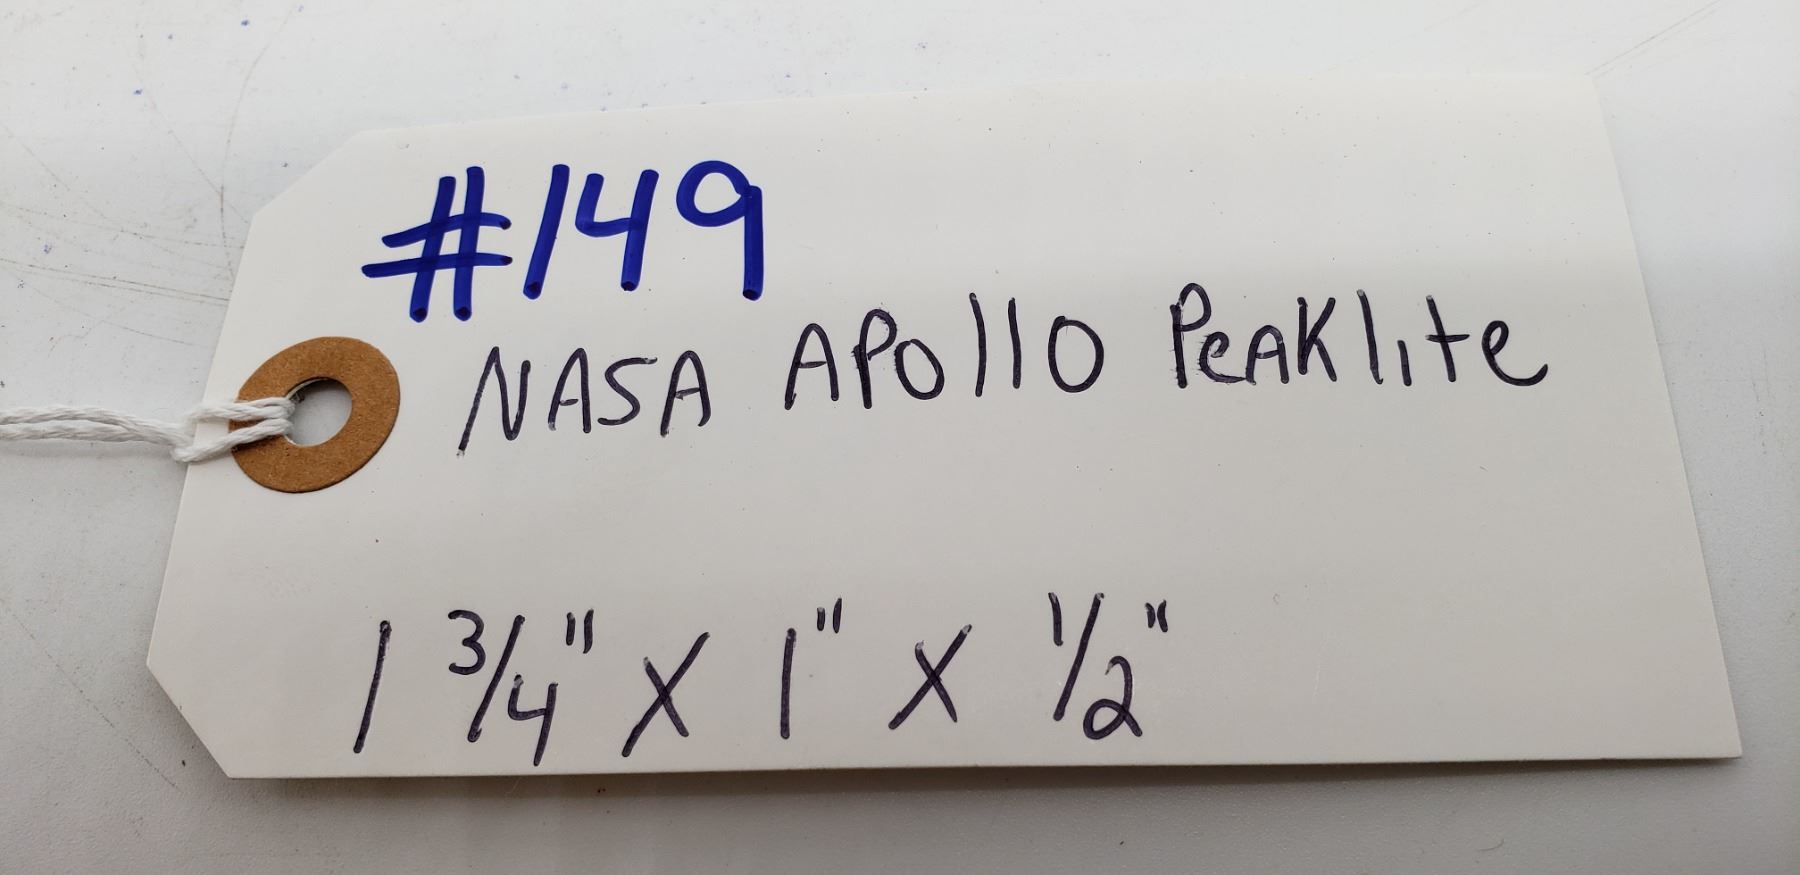 #149
NASA APollo PeAKlite
1 3/4" X 1" X 1/2"